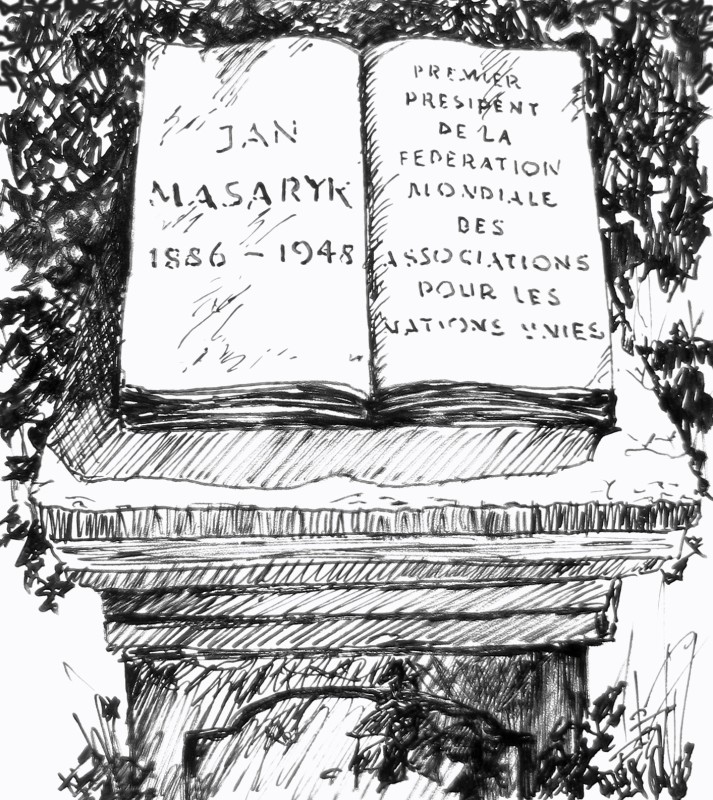 JAN
MASARYK
1886 - 1948
PREMIER
PRESIDENT
DE LA
FEDERATION
MONDIALE
DES
ASSOCIATIONS
POUR LES
NATIONS UNIES